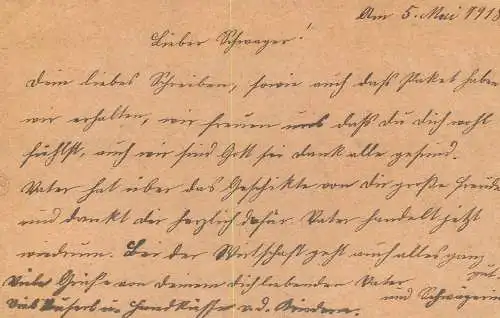 Am 5. Mai 191
Lieber Schwager!
Dein liebes Schreiben, sowie auch daß Paket haben
wir erhalten, wir freuen uns daß du dich wohl
fühlst, auch wir sind Gott sei dank alle gesund.
Vater hat über das Geschikte von Dir große Freude
und dankt dir herzlich dafür. Vater handelt jetzt
wiedrum. Bei der Wirtschaft geht auch alles ganz
gut.
Viele Grüße von deinem dich liebenden Vater
und Schwägerin
Viele u. Handküsse v. d. Kindern.